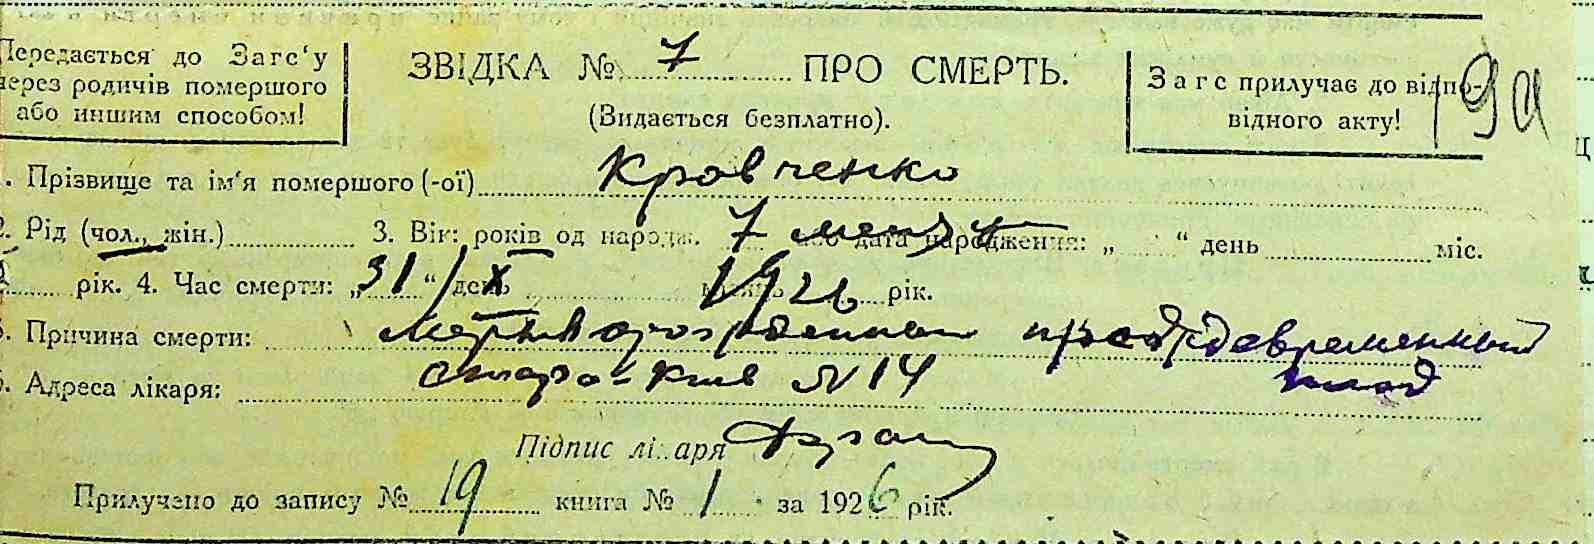 Передається до Загс‘у
через родичів помершого
або иншим способом!
ЗВІДКА № 7 ПРО СМЕРТЬ.
(Видається безплатно).
Загс прилучає до відпо-
відного акту!
19а
1. Прізвище та ім‘я помершого (-ої) Кравченко
2. Рід (чол., жін.) 3. Вік: років од народж. 7 дата народження: „ “ день міс.
рік. 4. Час смерти: „31“ день X 1926 рік.
5. Причина смерти: мертворожденный преждевременный
плод
6. Адреса лікаря: Старо-Киев №14
Підпис лікаря
Прилучено до запису № 19 книга № 1 за 1926 рік.